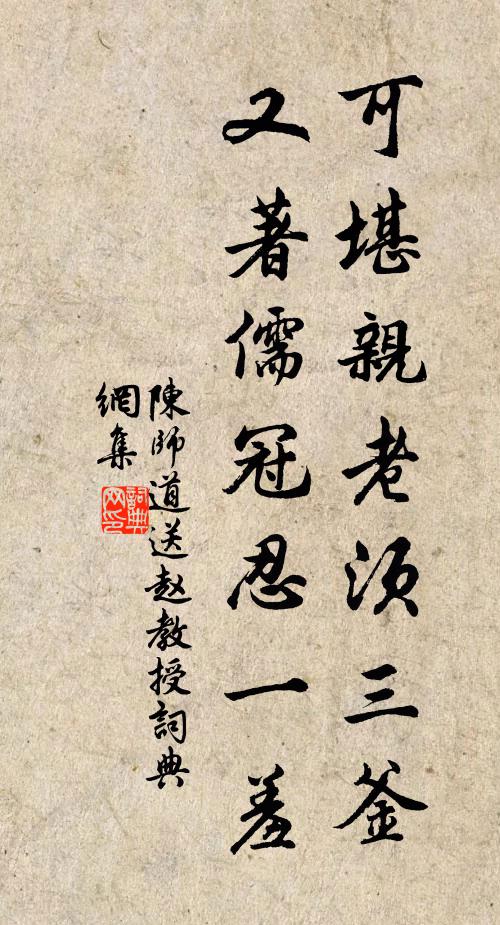 可堪親老須三釜
又著儒冠忍一羞
陳師道送赵教授詞典
網集
詞典
网印